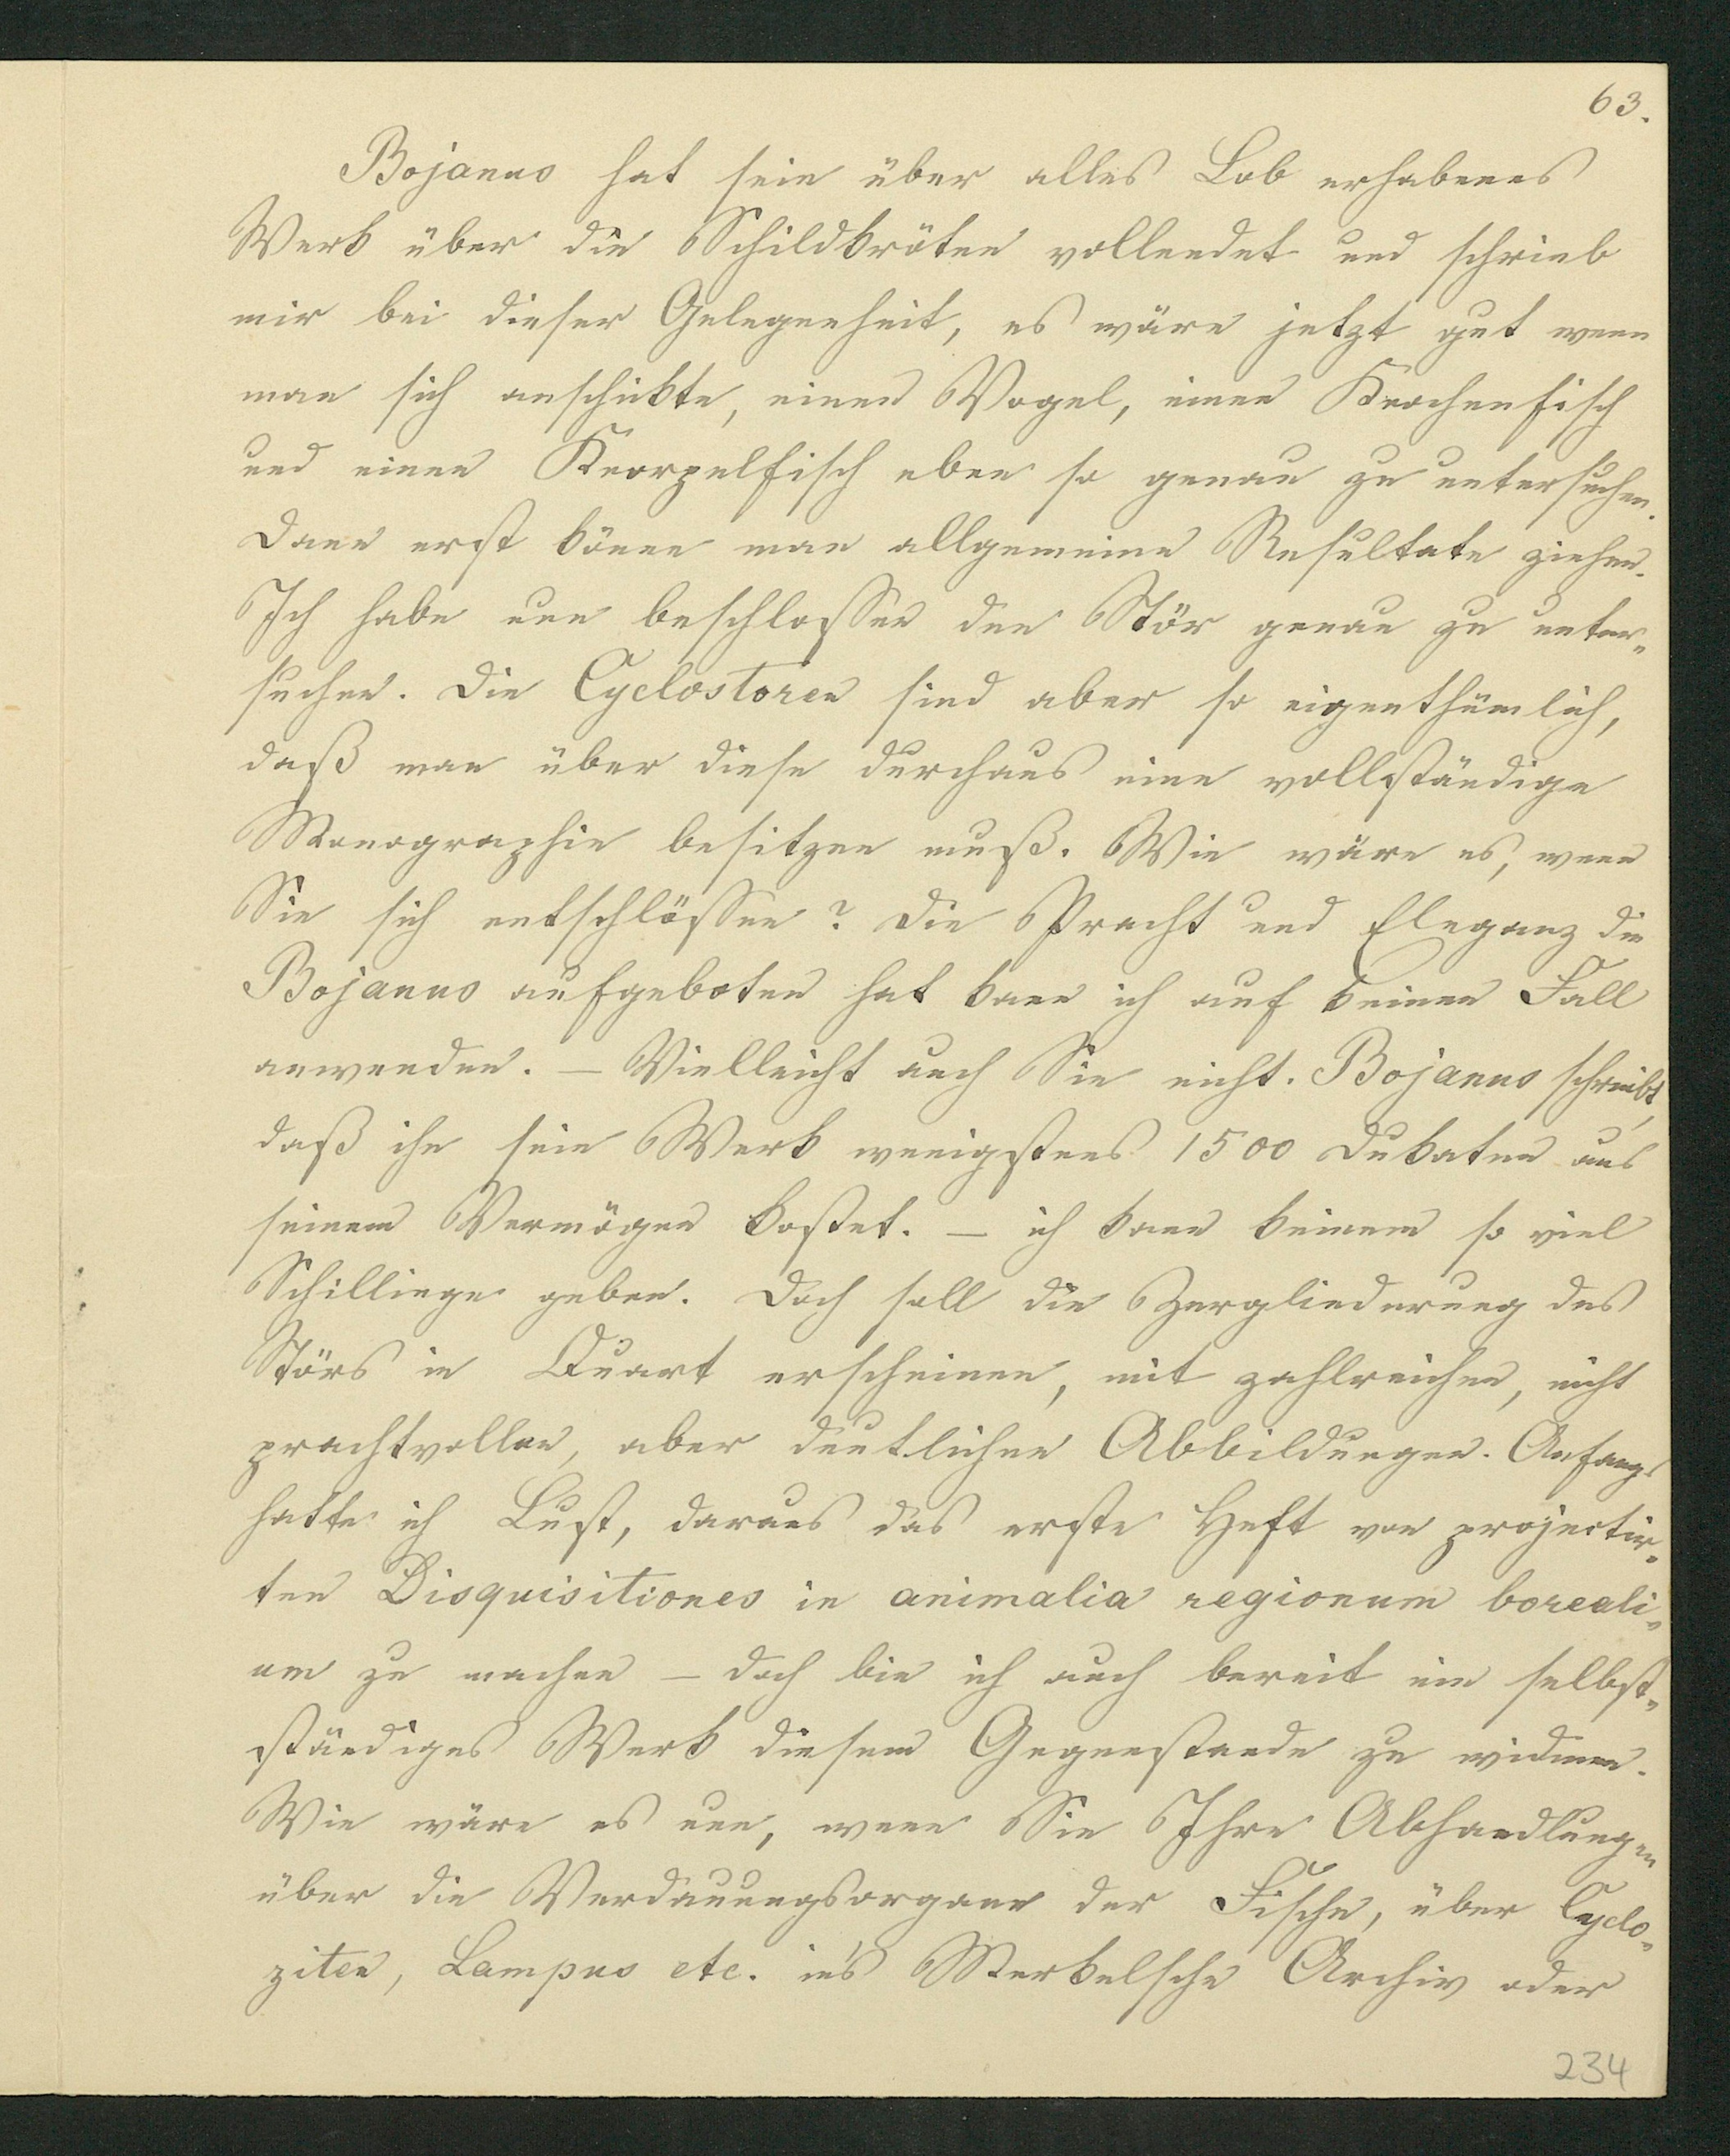 63.
Bojanus hat sein über alles Lob erhabenes
Werk über die Schildkröten vollendet und schrieb
mir bei dieser Gelegenheit, es wäre jetzt gut wenn
man sich anschickte, einen Vogel, einen Knochenfisch
und einen Knorpelfisch eben so genau zu untersuchen.
Dann erst könne man allgemeine Resultate ziehen.
Ich habe nun beschlossen den Stör genau zu unter-
suchen. Die Cyclostoren sind aber so eigenthümlich,
daß man über diese durchaus eine vollständige
Monographie besitzen muß. Wie wäre es, wenn
Sie sich entschlössen? Die Pracht und Eleganz die
Bojanus aufgeboten hat kann ich auf keinen Fall
anwenden. – Vielleicht auch Sie nicht. Bojanus schreibt,
daß ihn sein Werk wenigstens 1500 Dukaten aus
seinem Vermögen kostet. – ich kann keinem so viel
Schillinge geben. Doch soll die Zergliederung des
Störs in Quart erscheinen, mit zahlreichen, nicht
prachtvollen, aber deutlichen Abbildungen. Anfangs
hatte ich Lust, daraus das erste Heft von projectir-
ten Disquisitiones in animalia regionum boreali-
um zu machen – doch bin ich auch bereit ein selbst-
ständiges Werk diesem Gegenstande zu widmen.
Wie wäre es nun, wenn Sie Ihre Abhandlungen
über die Verdauungsorgane der Fische, über Cyclo-
ziten, Lampus etc. in's Merkelsche Archiv oder
234